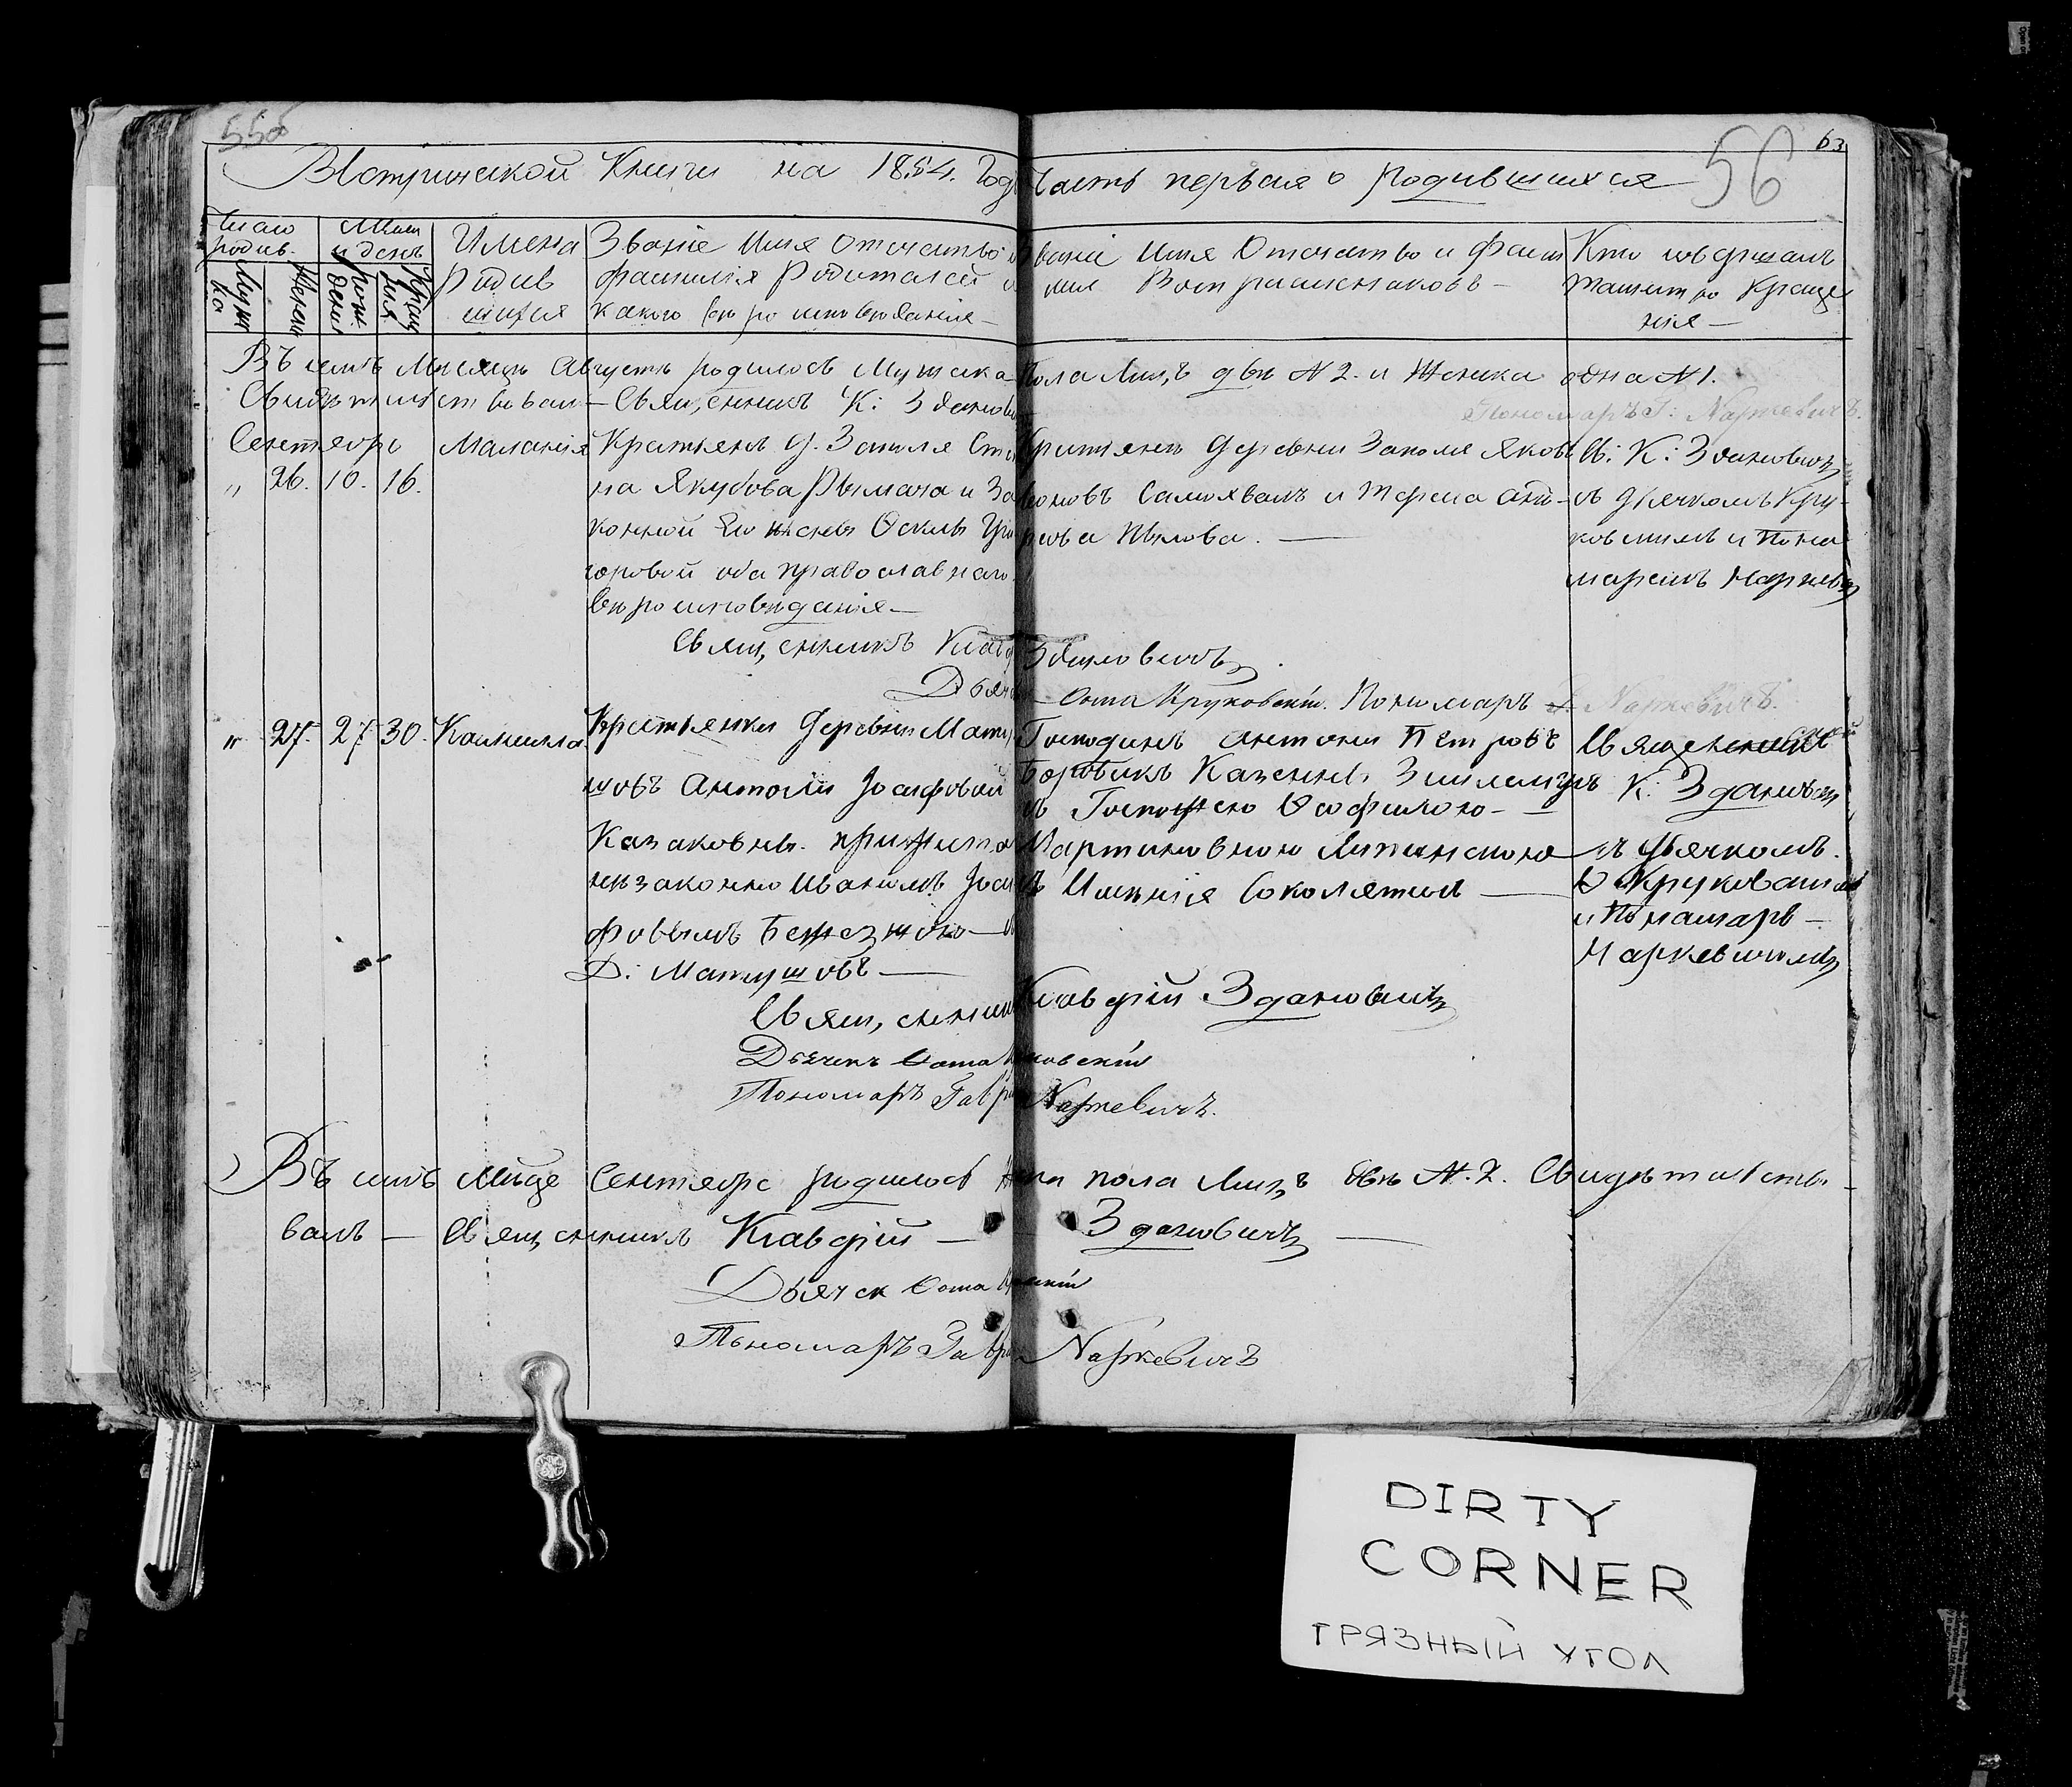 55об
56
63
Метрической Книги на 1854. Годъ Часть первая о родившихся
Число родив.
Муж ка
Женск
Мѣсяц и день
Рожденія
Крещенія
Имена
Родив
шихся
Званіе Имя Отчество и
фамилія Родителей и
какого вѣроисповѣданія —
Званіе Имя Отчество и фами
лія Воспріемниковъ —
Кто совершалъ
таинство Креще
нія —
Въ семъ Мѣсяцѣ Августѣ родилось Мужска Пола Лицъ двѣ № 2. и Женска одна № 1.
Свидѣтельствовалъ — Священникъ К: Здановичъ
Пономарь Г: Наркевичъ.
Сентябрь
" 26. 10. 16.
Маланія
Крестьянъ д. Заполя
на Якубова Рымача и За
конной Его жены
горовой оба православнаго
вѣроисповѣданія —
Крестьянъ Деревни Заполя Яковъ
Самохвалъ и
К: Здановичъ
съ дьячкомъ Кру-
ковскимъ и Поно
маремъ Наркевич
Священникъ Клавд Здановичъ.
Дьячекъ Фома Круковскій. Пономарь Г. Наркевичъ.
" 27. 27 30. Камилла
Крестьянки Деревни Мату
шовъ Антоли Іосифовой
Казаковны. прижита
незаконно Иваномъ Іоси
фовымъ
Д: Матушовъ —
Господинъ Антоній Петровъ
Боровикъ Казенный Землемѣръ
съ Госпожею Феофилою —
Мартиновною
Имѣнія
Священникъ
К: Здановичъ
съ Дьячкомъ.
Ф Круковскимъ
и Пономарь —
Наркевичемъ
Священникъ Клавдій Здановичъ
Дьячекъ Фома Круковскій
Пономарь Гаврі Наркевичъ.
Въ семъ Мѣсце Сентябре родилось Жена пола Лицъ двѣ №. 2. Свидѣтельство-
валъ — Священникъ Клавдій — Здановичъ —
Дьячек Фома
Пономарь Гаврі Наркевичъ
DIRTY
CORNER
ГРЯЗНЫЙ УГОЛ